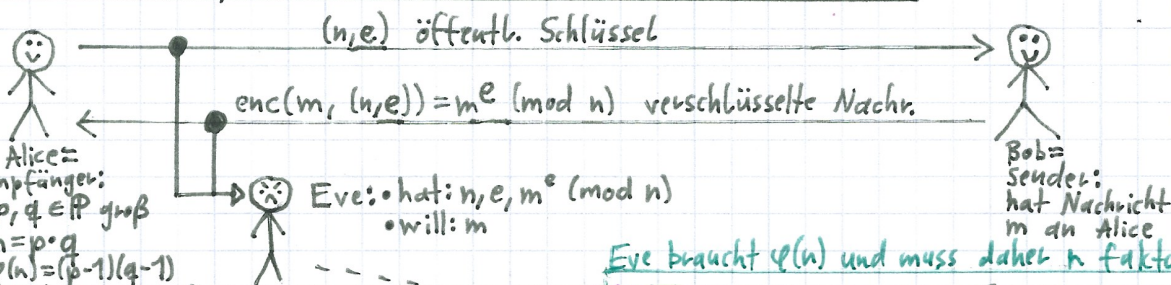 (n,e) öffentl. Schlüssel
enc(m, (n,e)) = m^e (mod n) verschlüsselte Nachr.
Alice=
mpfänger:
p, q ∈ ℙ groß
n=p·q
φ(n)=(p-1)(q-1)
Eve: • hat: n, e, m^e (mod n)
• will: m
Bob=
sender:
hat Nachricht
m an Alice
Eve braucht φ(n) und muss daher n fakto